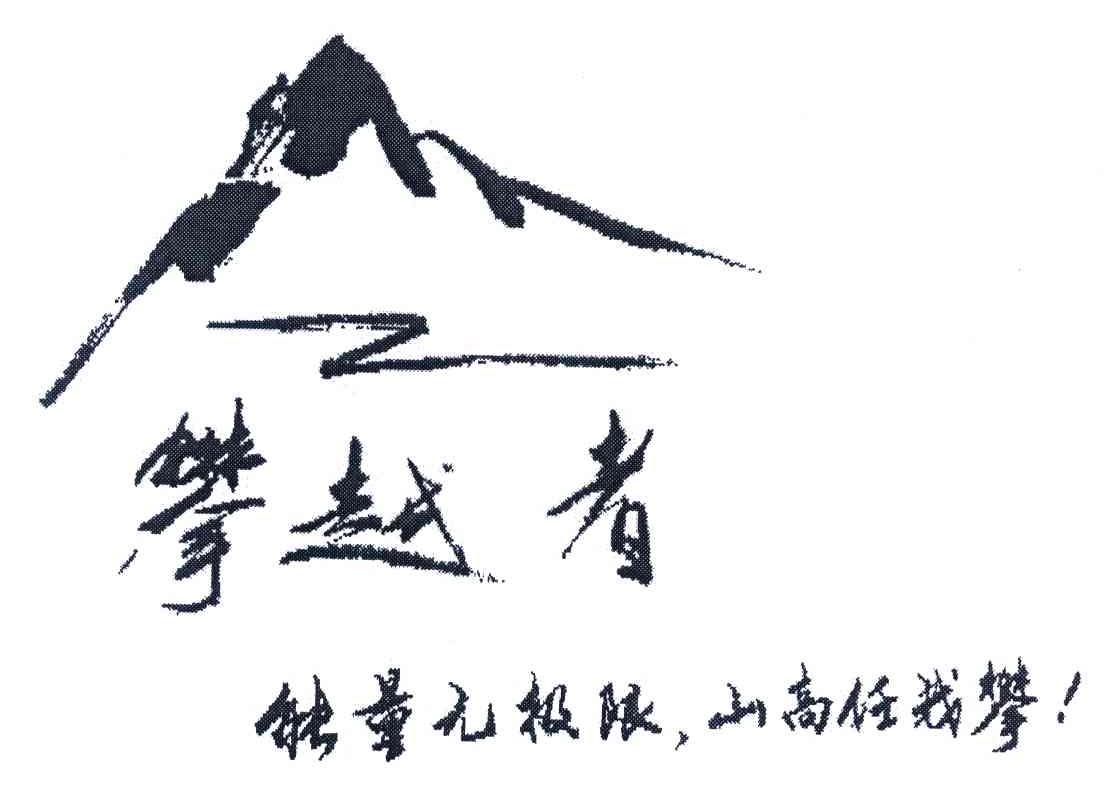 攀越者
能量无极限,山高任我攀!